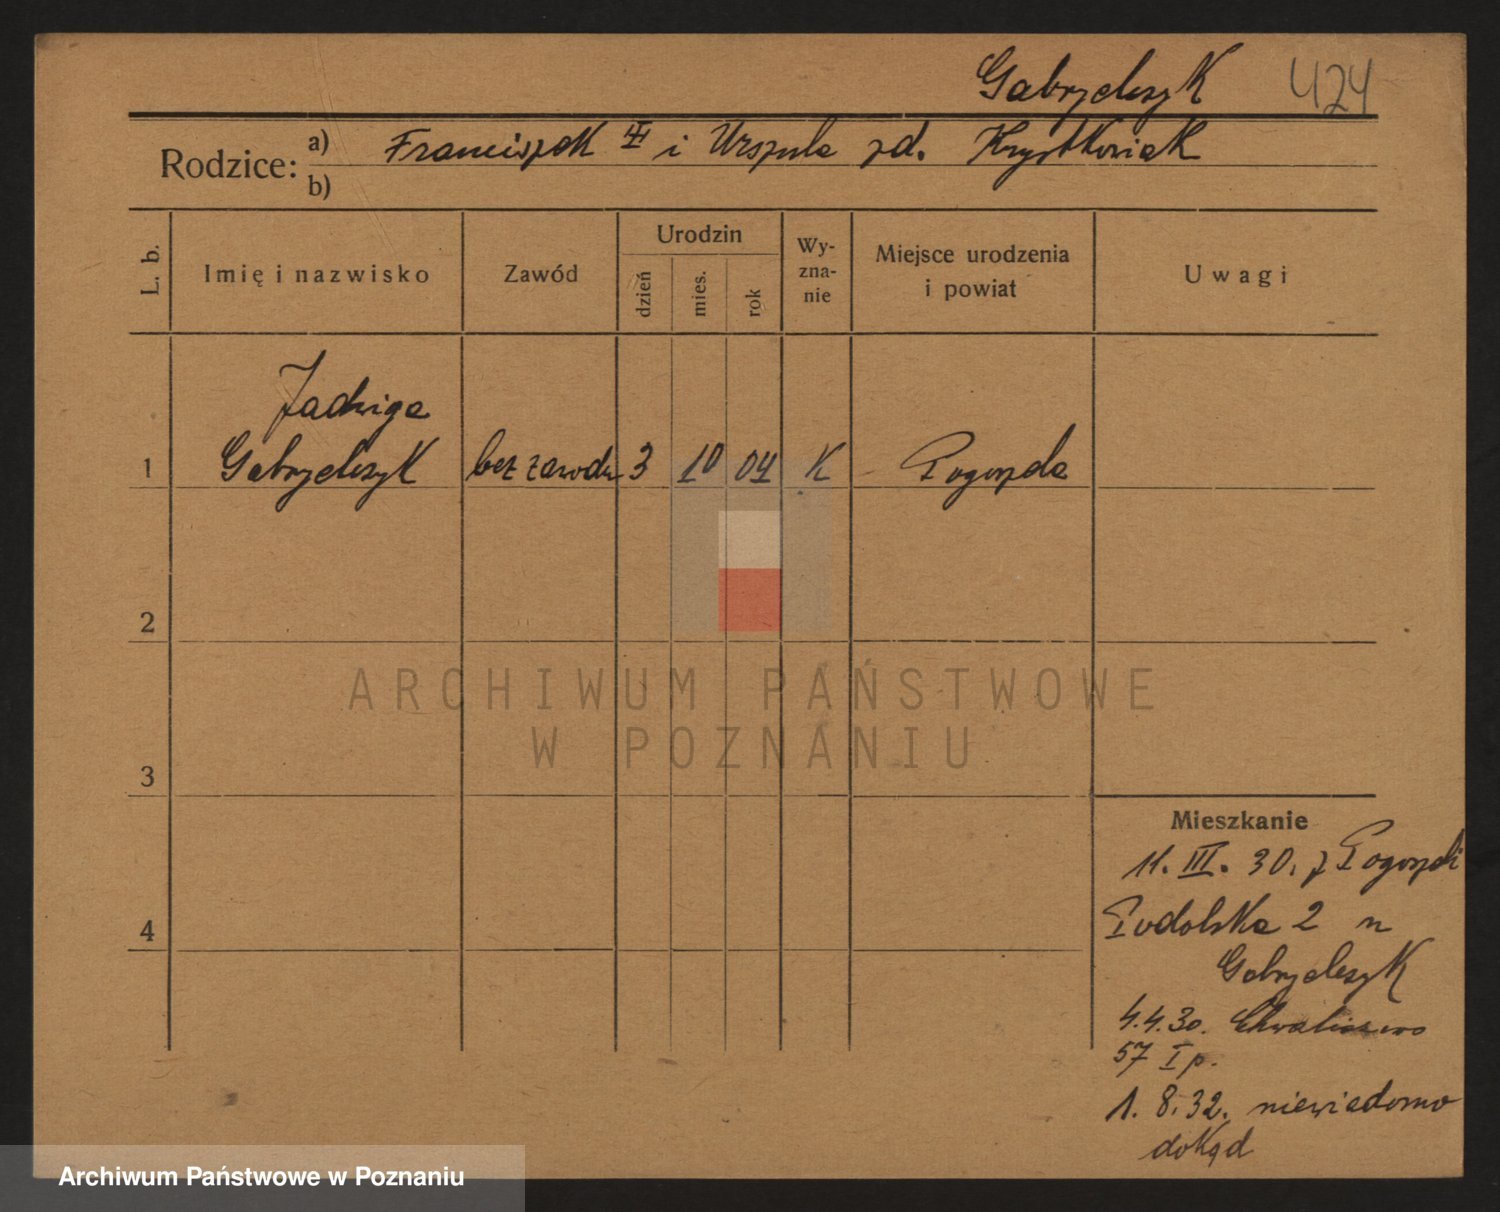 Gabryelczyk 424
Rodzice: a) Franciszek i Urszula zd. Krystkowiak
b)
L. b. Imię i nazwisko Zawód Urodzin dzień mies. rok Wyznanie Miejsce urodzenia i powiat Uwagi
Jadwiga
1 Gabryelczyk bez zawodu 3 10 04 K Pogorzela
2
3
4
ARCHIWUM PAŃSTWOWE
W POZNANIU
Mieszkanie
11. III. 30. z Pogorzeli
Podolska 2 u
Gabryelczyk
4.4.30. Chwaliszewo
57 I p.
1. 8. 32. niewiadomo
dokąd
Archiwum Państwowe w Poznaniu